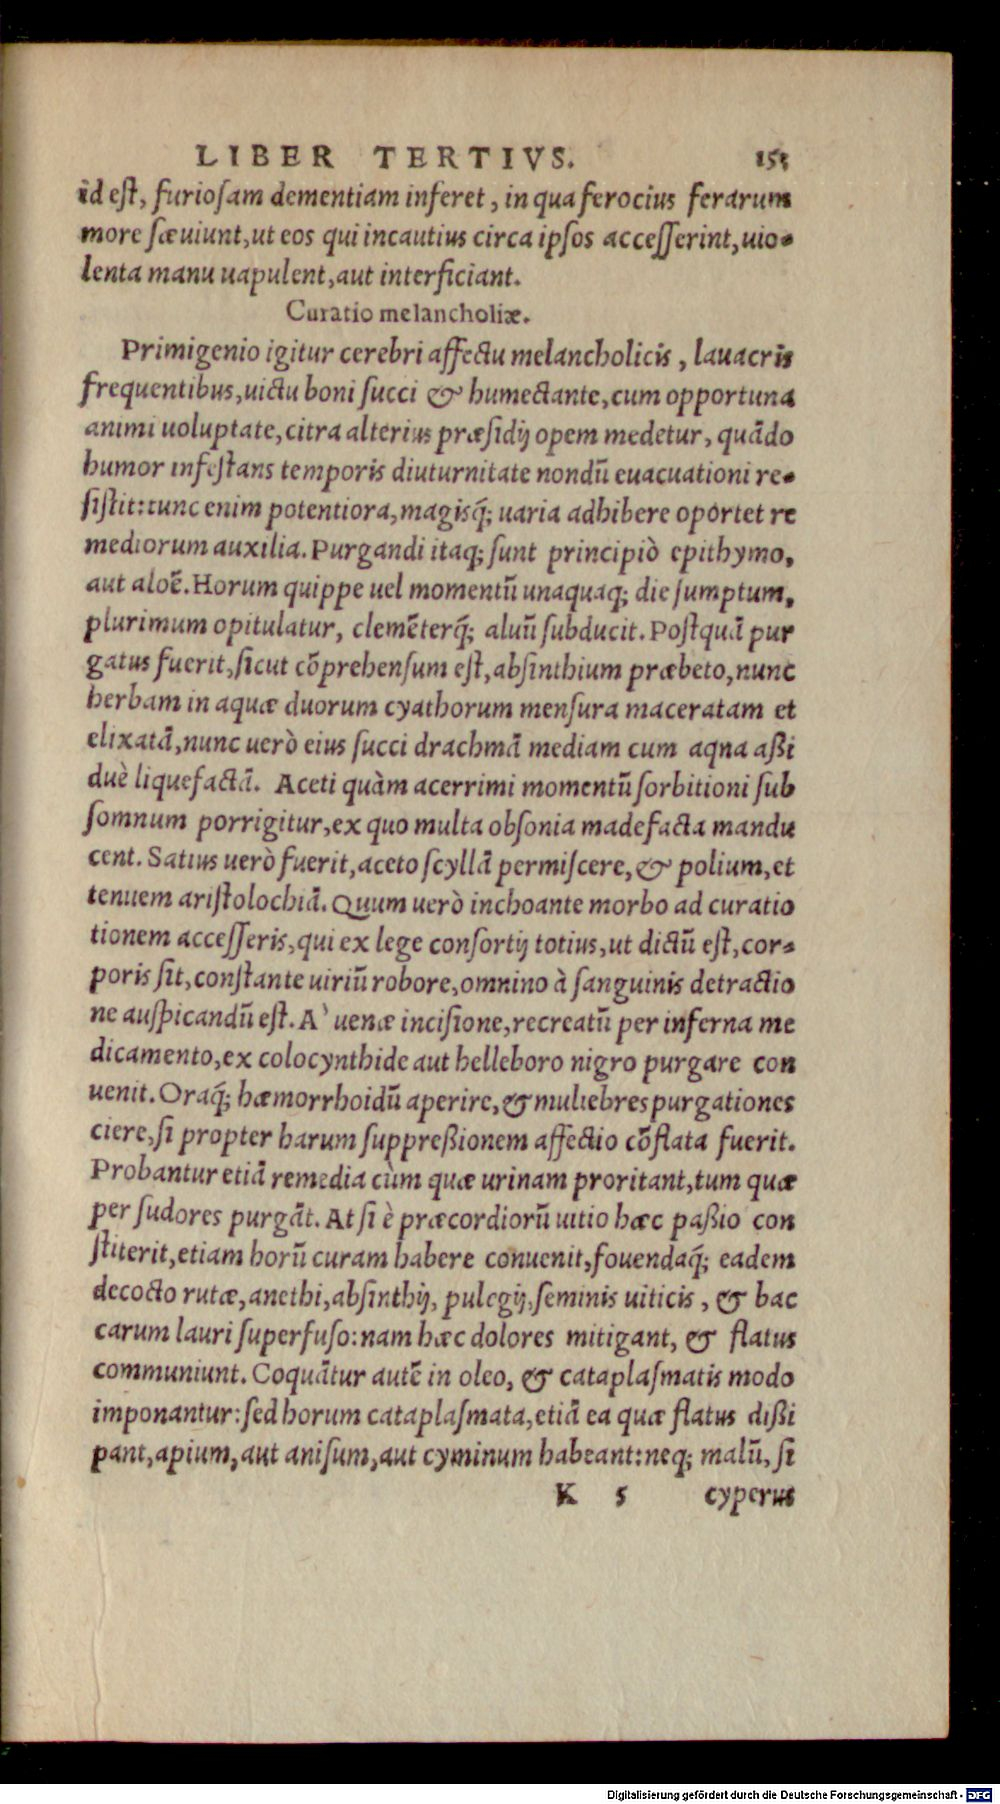 LIBER TERTIVS. 153
id eſt, furioſam dementiam inferet, in qua ferocius ferarum
more ſæuiunt, ut eos qui incautius circa ipſos acceſſerint, uio-
lenta manu uapulent, aut interficiant.
Curatio melancholiæ.
Primigenio igitur cerebri affectu melancholicis, lauacris
frequentibus, uictu boni ſucci & humectante, cum opportuna
animi uoluptate, citra alterius præſidij opem medetur, quādo
humor infeſtans temporis diuturnitate nondū euacuationi re-
ſiſtit: tunc enim potentiora, magisq́; uaria adhibere oportet re
mediorum auxilia. Purgandi itaq; ſunt principiò epithymo,
aut aloē. Horum quippe uel momentū unaquaq; die ſumptum,
plurimum opitulatur, clemēterq́; aluū ſubducit. Poſtquā pur
gatus fuerit, ſicut cōprehenſum eſt, abſinthium præbeto, nunc
herbam in aquæ duorum cyathorum menſura maceratam et
elixatā, nunc uerò eius ſucci drachmā mediam cum aqna aßi
duè liquefactā. Aceti quàm acerrimi momentū ſorbitioni ſub
ſomnum porrigitur, ex quo multa obſonia madefacta mandu
cent. Satius uerò fuerit, aceto ſcyllā permiſcere, & polium, et
tenuem ariſtolochiā. Quum uerò inchoante morbo ad curatio
tionem acceſſeris, qui ex lege conſortij totius, ut dictū eſt, cor-
poris ſit, conſtante uiriū robore, omnino à ſanguinis detractio
ne auſpicandū eſt. A` uenæ inciſione, recreatū per inferna me
dicamento, ex colocynthide aut helleboro nigro purgare con
uenit. Oraq́; hæmorrhoidū aperire, & muliebres purgationes
ciere, ſi propter harum ſuppreßionem affectio cōflata fuerit.
Probantur etiā remedia cùm quæ urinam proritant, tum quæ
per ſudores purgāt. At ſi è præcordiorū uitio hæc paßio con
ſtiterit, etiam horū curam habere conuenit, fouendaq́; eadem
decocto rutæ, anethi, abſinthij, pulegij, ſeminis uiticis, & bac
carum lauri ſuperfuſo: nam hæc dolores mitigant, & flatus
communiunt. Coquātur autē in oleo, & cataplaſmatis modo
imponantur: ſed horum cataplaſmata, etiā ea quæ flatus dißi
pant, apium, aut aniſum, aut cyminum habeant: neq; malū, ſi
K 5 cyperus
Digitalisierung gefördert durch die Deutsche Forschungsgemeinschaft - DFG